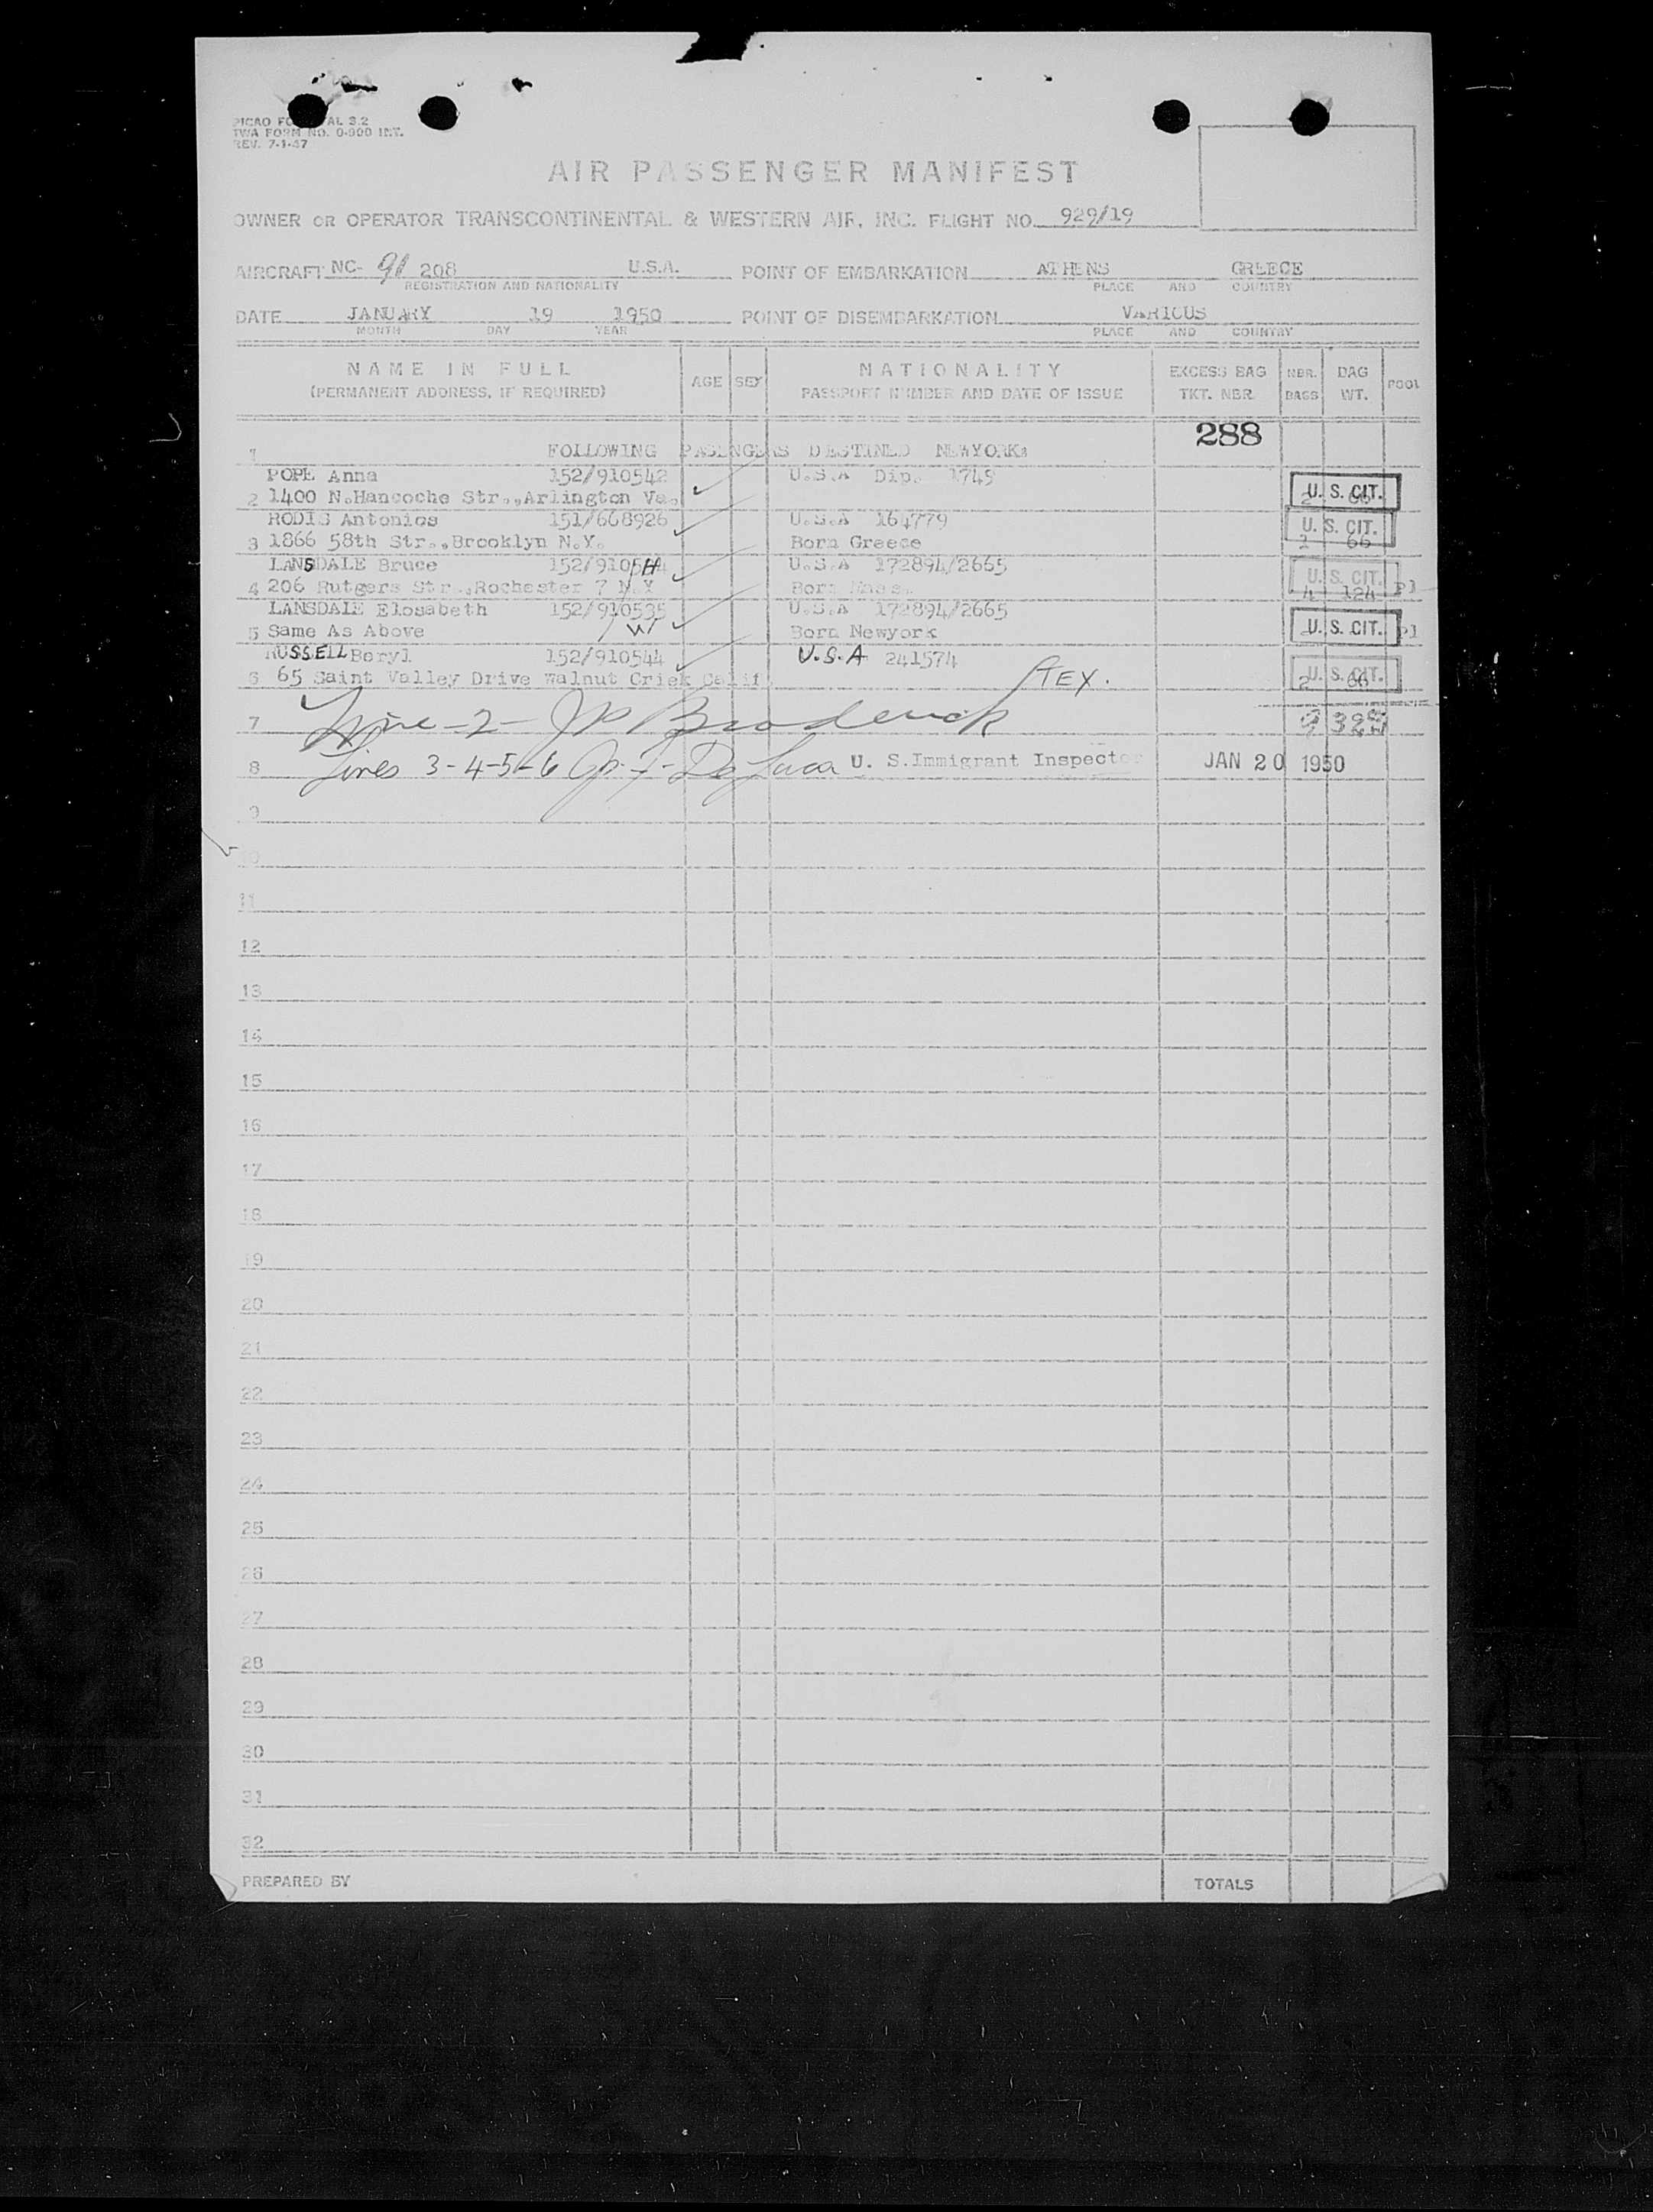 PICAO FO AL 3.2
TWA FORM NO. 0-900 INT.
REV. 7-1-47
AIR PASSENGER MANIFEST
OWNER OR OPERATOR TRANSCONTINENTAL & WESTERN AIR, INC. FLIGHT NO. 929/19
AIRCRAFT NC- 91 208 U.S.A. POINT OF EMBARKATION ATHENS GREECE
REGISTRATION AND NATIONALITY PLACE AND COUNTRY
DATE JANUARY 19 1950 POINT OF DISEMBARKATION VARIOUS
MONTH DAY YEAR PLACE AND COUNTRY
NAME IN FULL AGE SEX NATIONALITY EXCESS BAG NBR. BAG POOL
(PERMANENT ADDRESS, IF REQUIRED) PASSPORT NUMBER AND DATE OF ISSUE TKT. NBR. BAGS WT.
288
1 FOLLOWING PASENGERS DESTINED NEWYORK:
POPE Anna 152/910542 U.S.A Dip. 1749
2 1400 N.Hancoche Str.,Arlington Va. U. S. CIT. 2 66
RODIS Antonios 151/668926 U.S.A 164779
3 1866 58th Str.,Brooklyn N.Y. Born Greece U. S. CIT. 66
LANSDALE Bruce U.S.A 172894/2665
4 206 Rutgers Str.,Rochester 7 N.Y Born Mass. U. S. CIT. 4 124 Pl
LANSDALE Elosabeth 152/910535 U.S.A 172894/2665
5 Same As Above W Born Newyork U. S. CIT. Pl
RUSSELL Beryl 152/910544 U.S.A 241574
6 65 Saint Valley Drive Walnut Criek Calif TEX. U. S. CIT. 2 66
7 Line - 2 - JP Broderick
8 Lines 3-4-5-6 De Luca U. S. Immigrant Inspector JAN 20 1950
9
10
11
12
13
14
15
16
17
18
19
20
21
22
23
24
25
26
27
28
29
30
31
32
PREPARED BY TOTALS